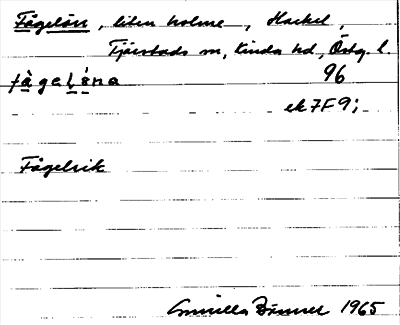 Fågelön, liten holme, Hackel,
Tjärstads sn, Kinda hd, Östg. l.
fågelöna 96
ek 7F9;
Fågelrik
Gunilla 1965